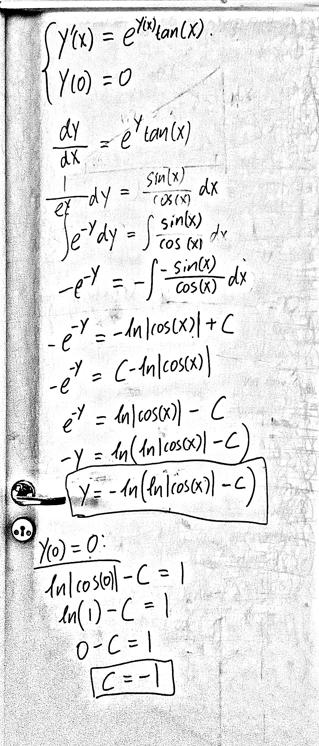 Y'(x) = e^{Y(x)} tan(x).
Y(0) = 0
dy/dx = e^Y tan(x)
1/e^Y dy = sin(x)/cos(x) dx
∫e^{-Y} dy = ∫ sin(x)/cos(x) dx
-e^{-Y} = -∫ -sin(x)/cos(x) dx
-e^{-Y} = -ln|cos(x)| + C
-e^{-Y} = C - ln|cos(x)|
e^{-Y} = ln|cos(x)| - C
-Y = ln(ln|cos(x)| - C)
Y = -ln(ln|cos(x)| - C)
Y(0) = 0:
ln|cos(0)| - C = 1
ln(1) - C = 1
0 - C = 1
C = -1